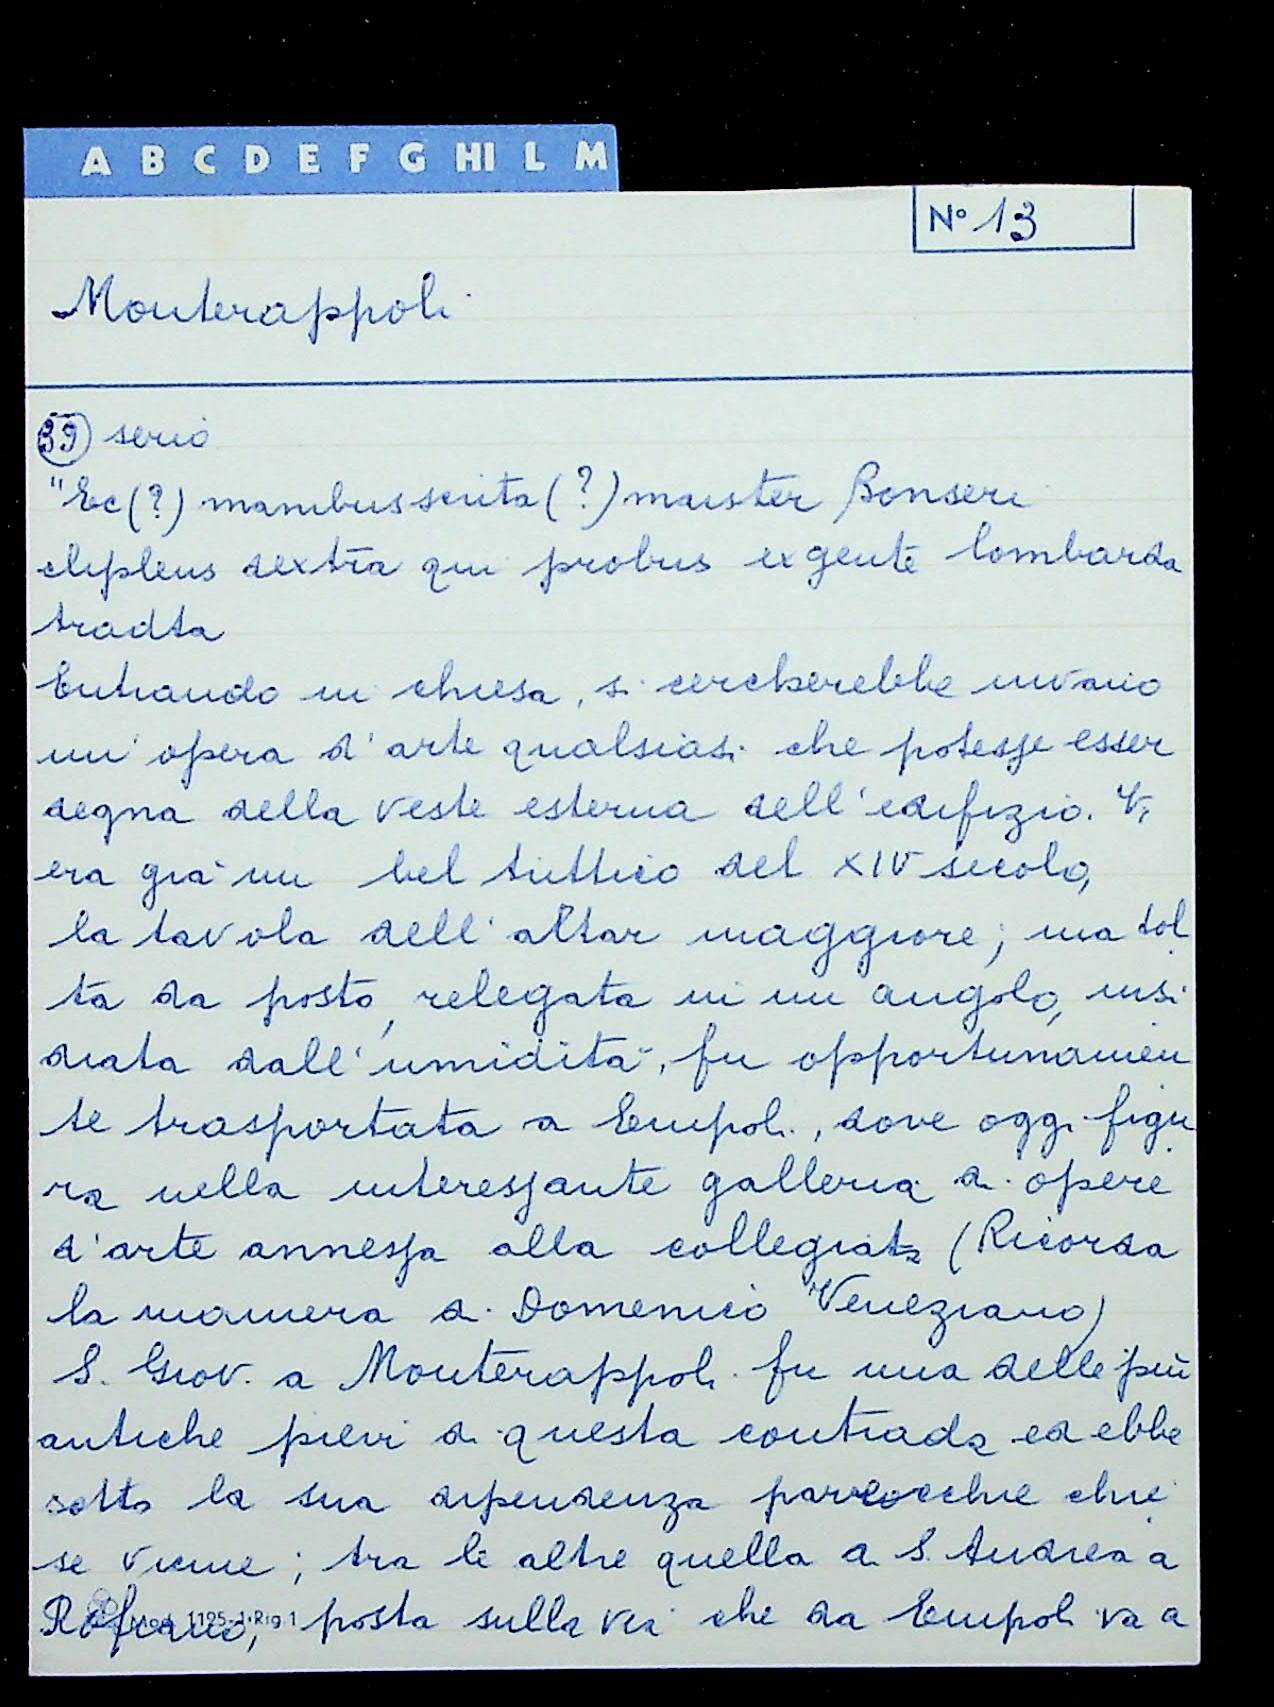 A B C D E F G HI L M
N° 13
Monterappoli
39 serio
"Ec(?) manibus scrita(?) maister Bonseri
clipleus dextra qui probus ex gente lombarda
tradta
Entrando in chiesa, si cercherebbe invano
un'opera d'arte qualsiasi che potesse esser
degna della veste esterna dell'edifizio. Vi
era già un bel trittico del XIV secolo,
la tavola dell'altar maggiore; ma tol
ta da posto, relegata in un angolo, insi
diata dall'umidità, fu opportunamen
te trasportata a Empoli, dove oggi figu
ra nella interessante galleria di opere
d'arte annessa alla collegiata (Ricorda
la maniera di Domenico Veneziano)
S. Giov. a Monterappoli fu una delle più
antiche pievi di questa contrada ed ebbe
sotto la sua dipendenza parrocchie chie
se vicine; tra le altre quella di S. Andrea a
posta sulla via che da Empoli va a
Mod. 1125-1-Rig. 1